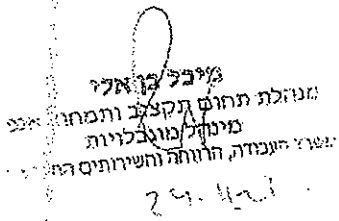 מיכל בן אלי
מנהלת תחום תקצוב ותמחור
מינהל מוגבלויות
משרד העבודה, הרווחה והשירותים